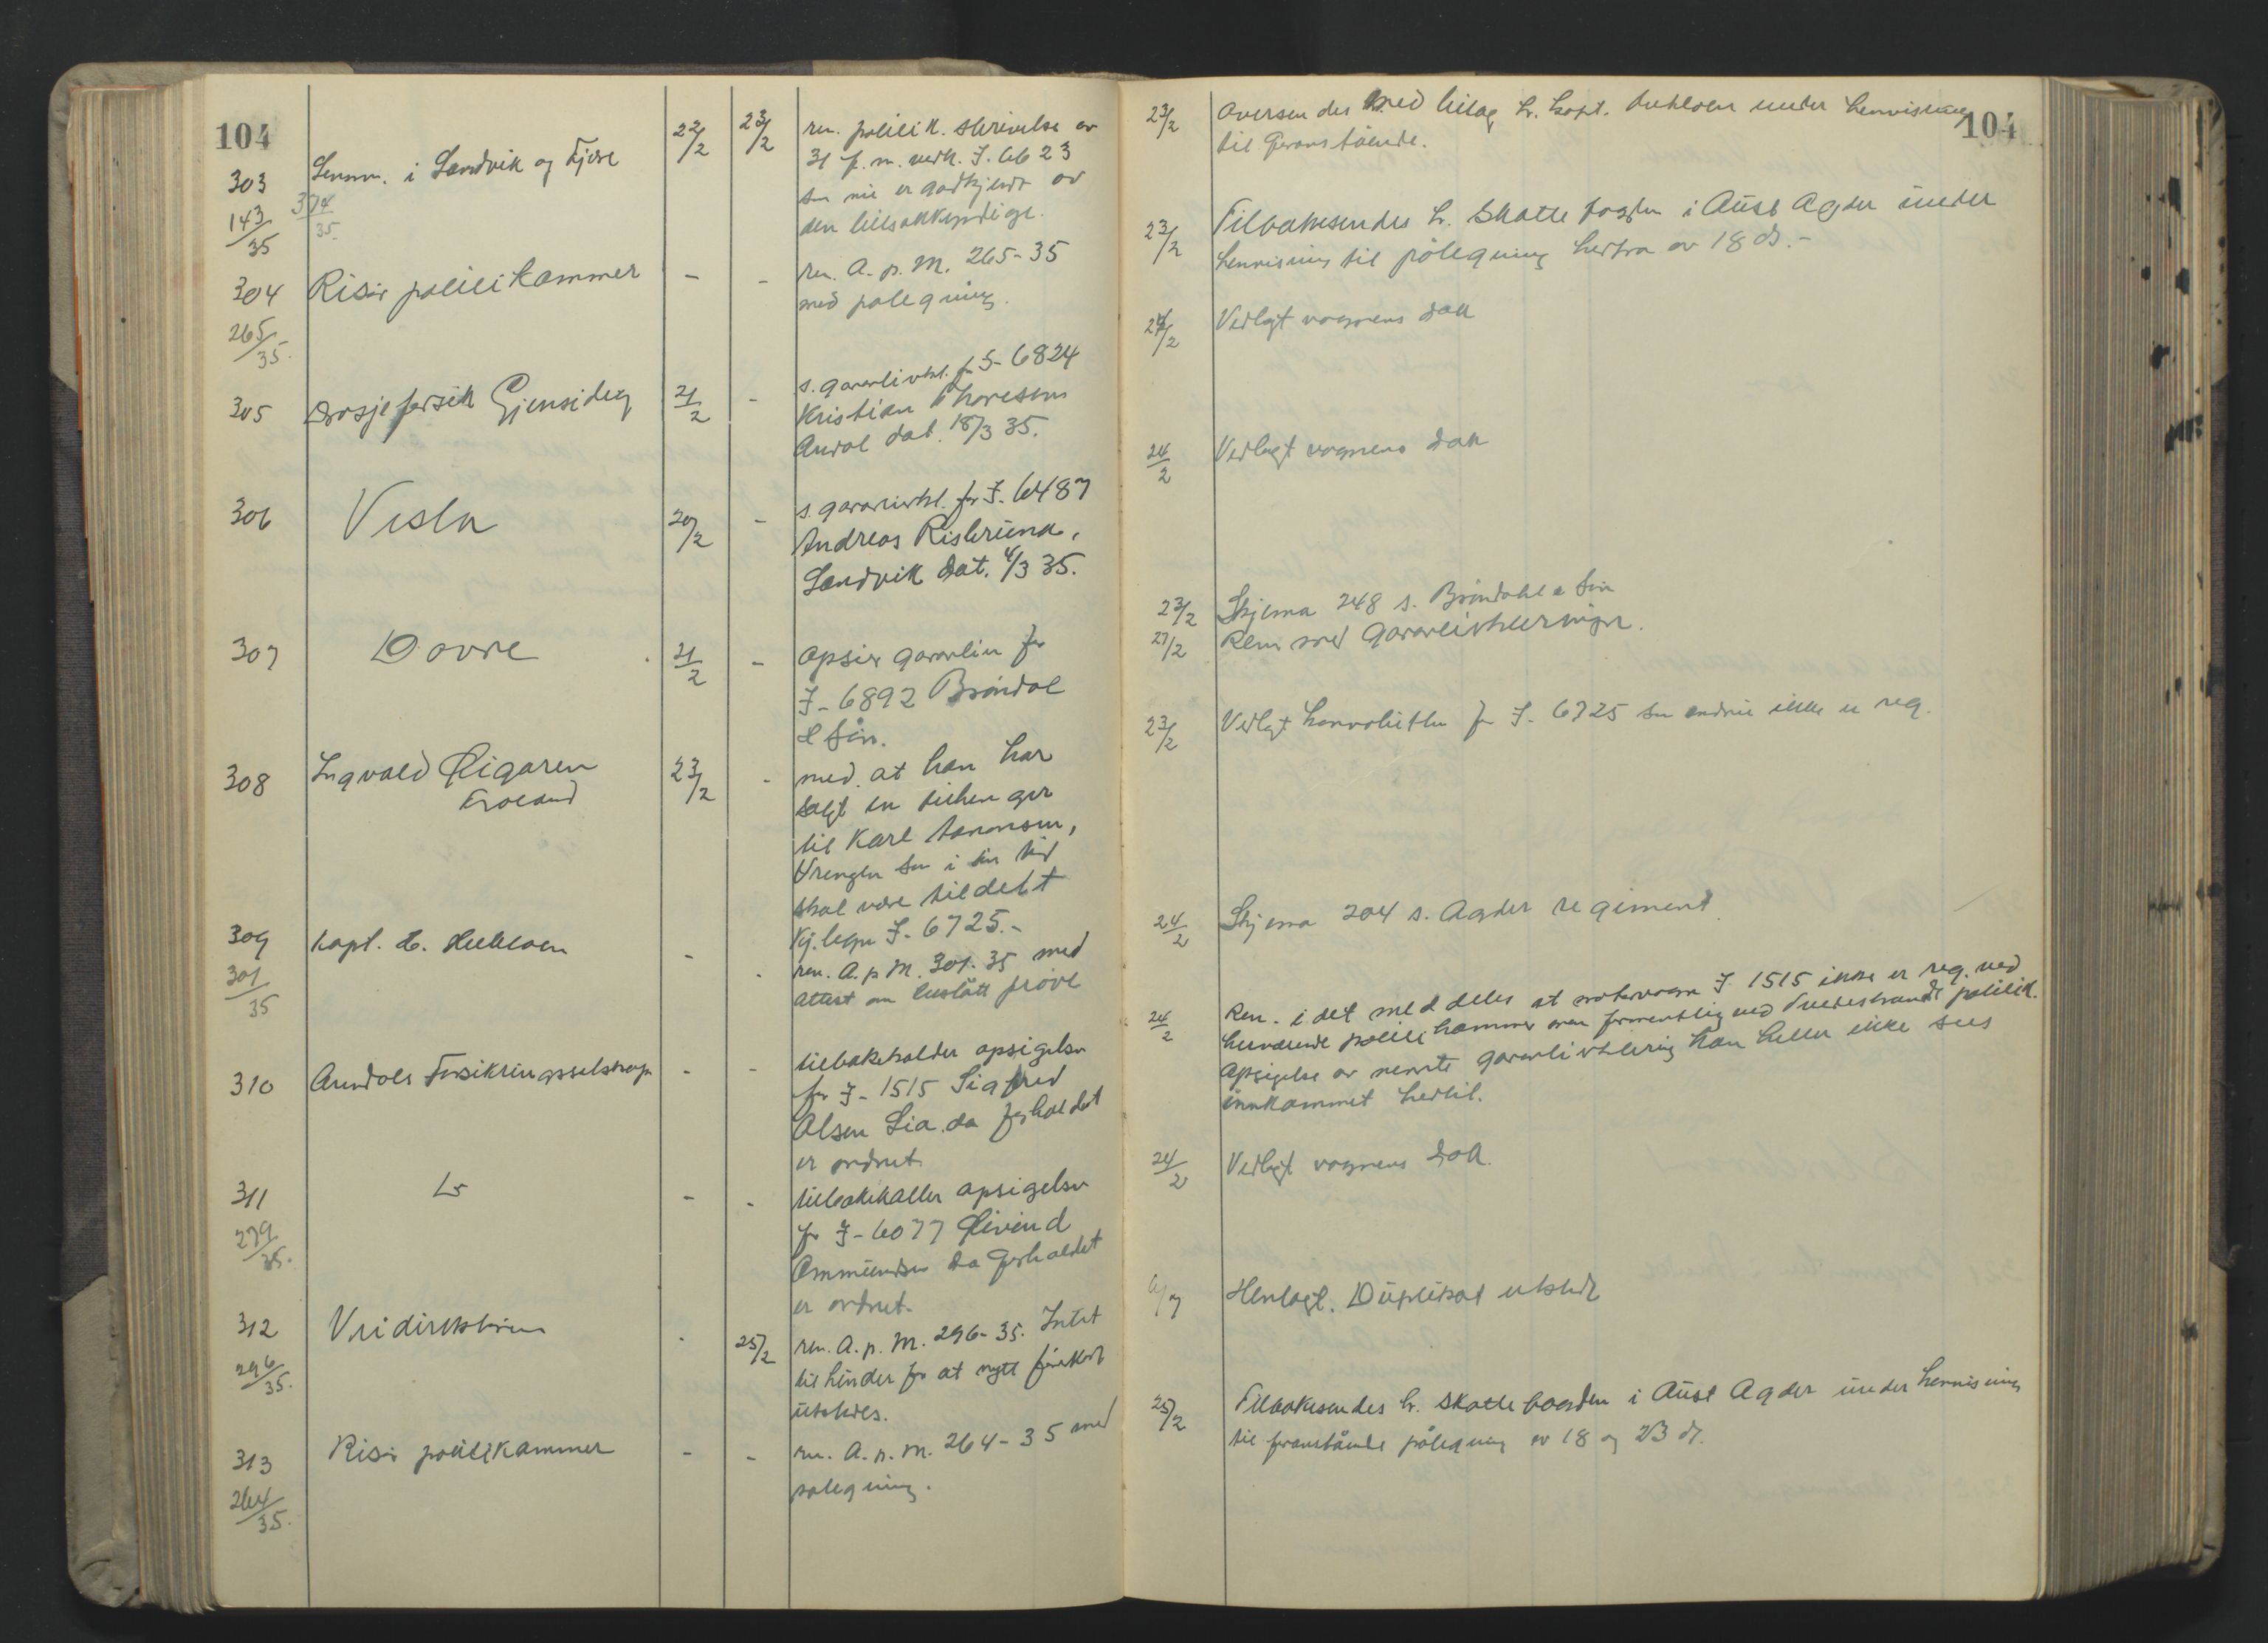 104
303
143/35
374/35.
Lensm. i Landvik og Fjære
22/2
23/2
ren. politik. skrivelse av
31 f. m. vedk. I. 6623
som nu er godkjent av
den bilsakkyndige.
304
265/35.
Risør politikammer
-
-
ren. A. p. M. 265-35
med pålegning.
305
Drosjeforsik Gjensidig
21/2
-
s. garantierkl. for I- 6824
Kristian Thoresens
Arendal dat. 18/3 35.
306
Vesta
20/2
-
s. garantierkl. for I. 6487
Andreas Risbrunn,
Landvik dat. 4/3 35.
307
Dovre
21/2
-
opsier garantien for
I- 6892 Brøndal
& Søn.
308
Ingvald Øigaren
Froland
23/2
-
med. at han har
solgt en tilhenger
til Karl Aanonsen,
Vrengen som i sin tid
skal være tildelt
kj. tegn I- 6725.-
309
301/35
Kapt. H.
-
-
ren. A. p. M. 301-35 med
attest om bestått prøve
310
Arendals Forsikringsselskap
-
-
tilbakeholder opsigelsen
for I- 1515 Sigfred
Olsen Lia, da forholdet
er ordnet.
311
279/35.
Do
-
-
tilbakekaller opsigelsen
for I- 6077 Øivind
Ommundsen da forholdet
er ordnet.
312
296/35.
Veidirektøren
-
25/2
ren. A. p. M. 296-35. Intet
til hinder for at nytt førerkort
utstedes.
313
264/35.
Risør politikammer
-
-
ren. A. p. M. 264-35 med
pålegning.
104
23/2
Oversendes med bilag hr. kapt. under henvisning
til foranstående.
23/2
Tilbakesendes hr. Skattefogden i Aust Agder under
henvisning til pålegning herfra av 18 ds. -
24/2
Vedlagt vognens dok
24/2
Vedlagt vognens dok
23/2
Skjema 248 s. Brøndahl & Søn
27/2
Ren med garantierkleringer.
23/2
Vedlagt konvolutten for I- 6725 som endnu ikke er reg.
24/2
Skjema 204 s. Agder regiment.
24/2
Ren. i det meddeles at motorvogn I 1515 ikke er reg. ved
herværende politikammer men formentlig ved Tvedestrands politik.
Opsigelse av nevnte garantierklering kan heller ikke sees
innkommet hertil.
24/2
Vedlagt vognens dok.
6/7
Henlagt. Duplikat utstedt
25/2
Tilbakesendes hr. Skattefogden i Aust Agder under henvisning
til foranstående pålegning av 18 og 23 ds.